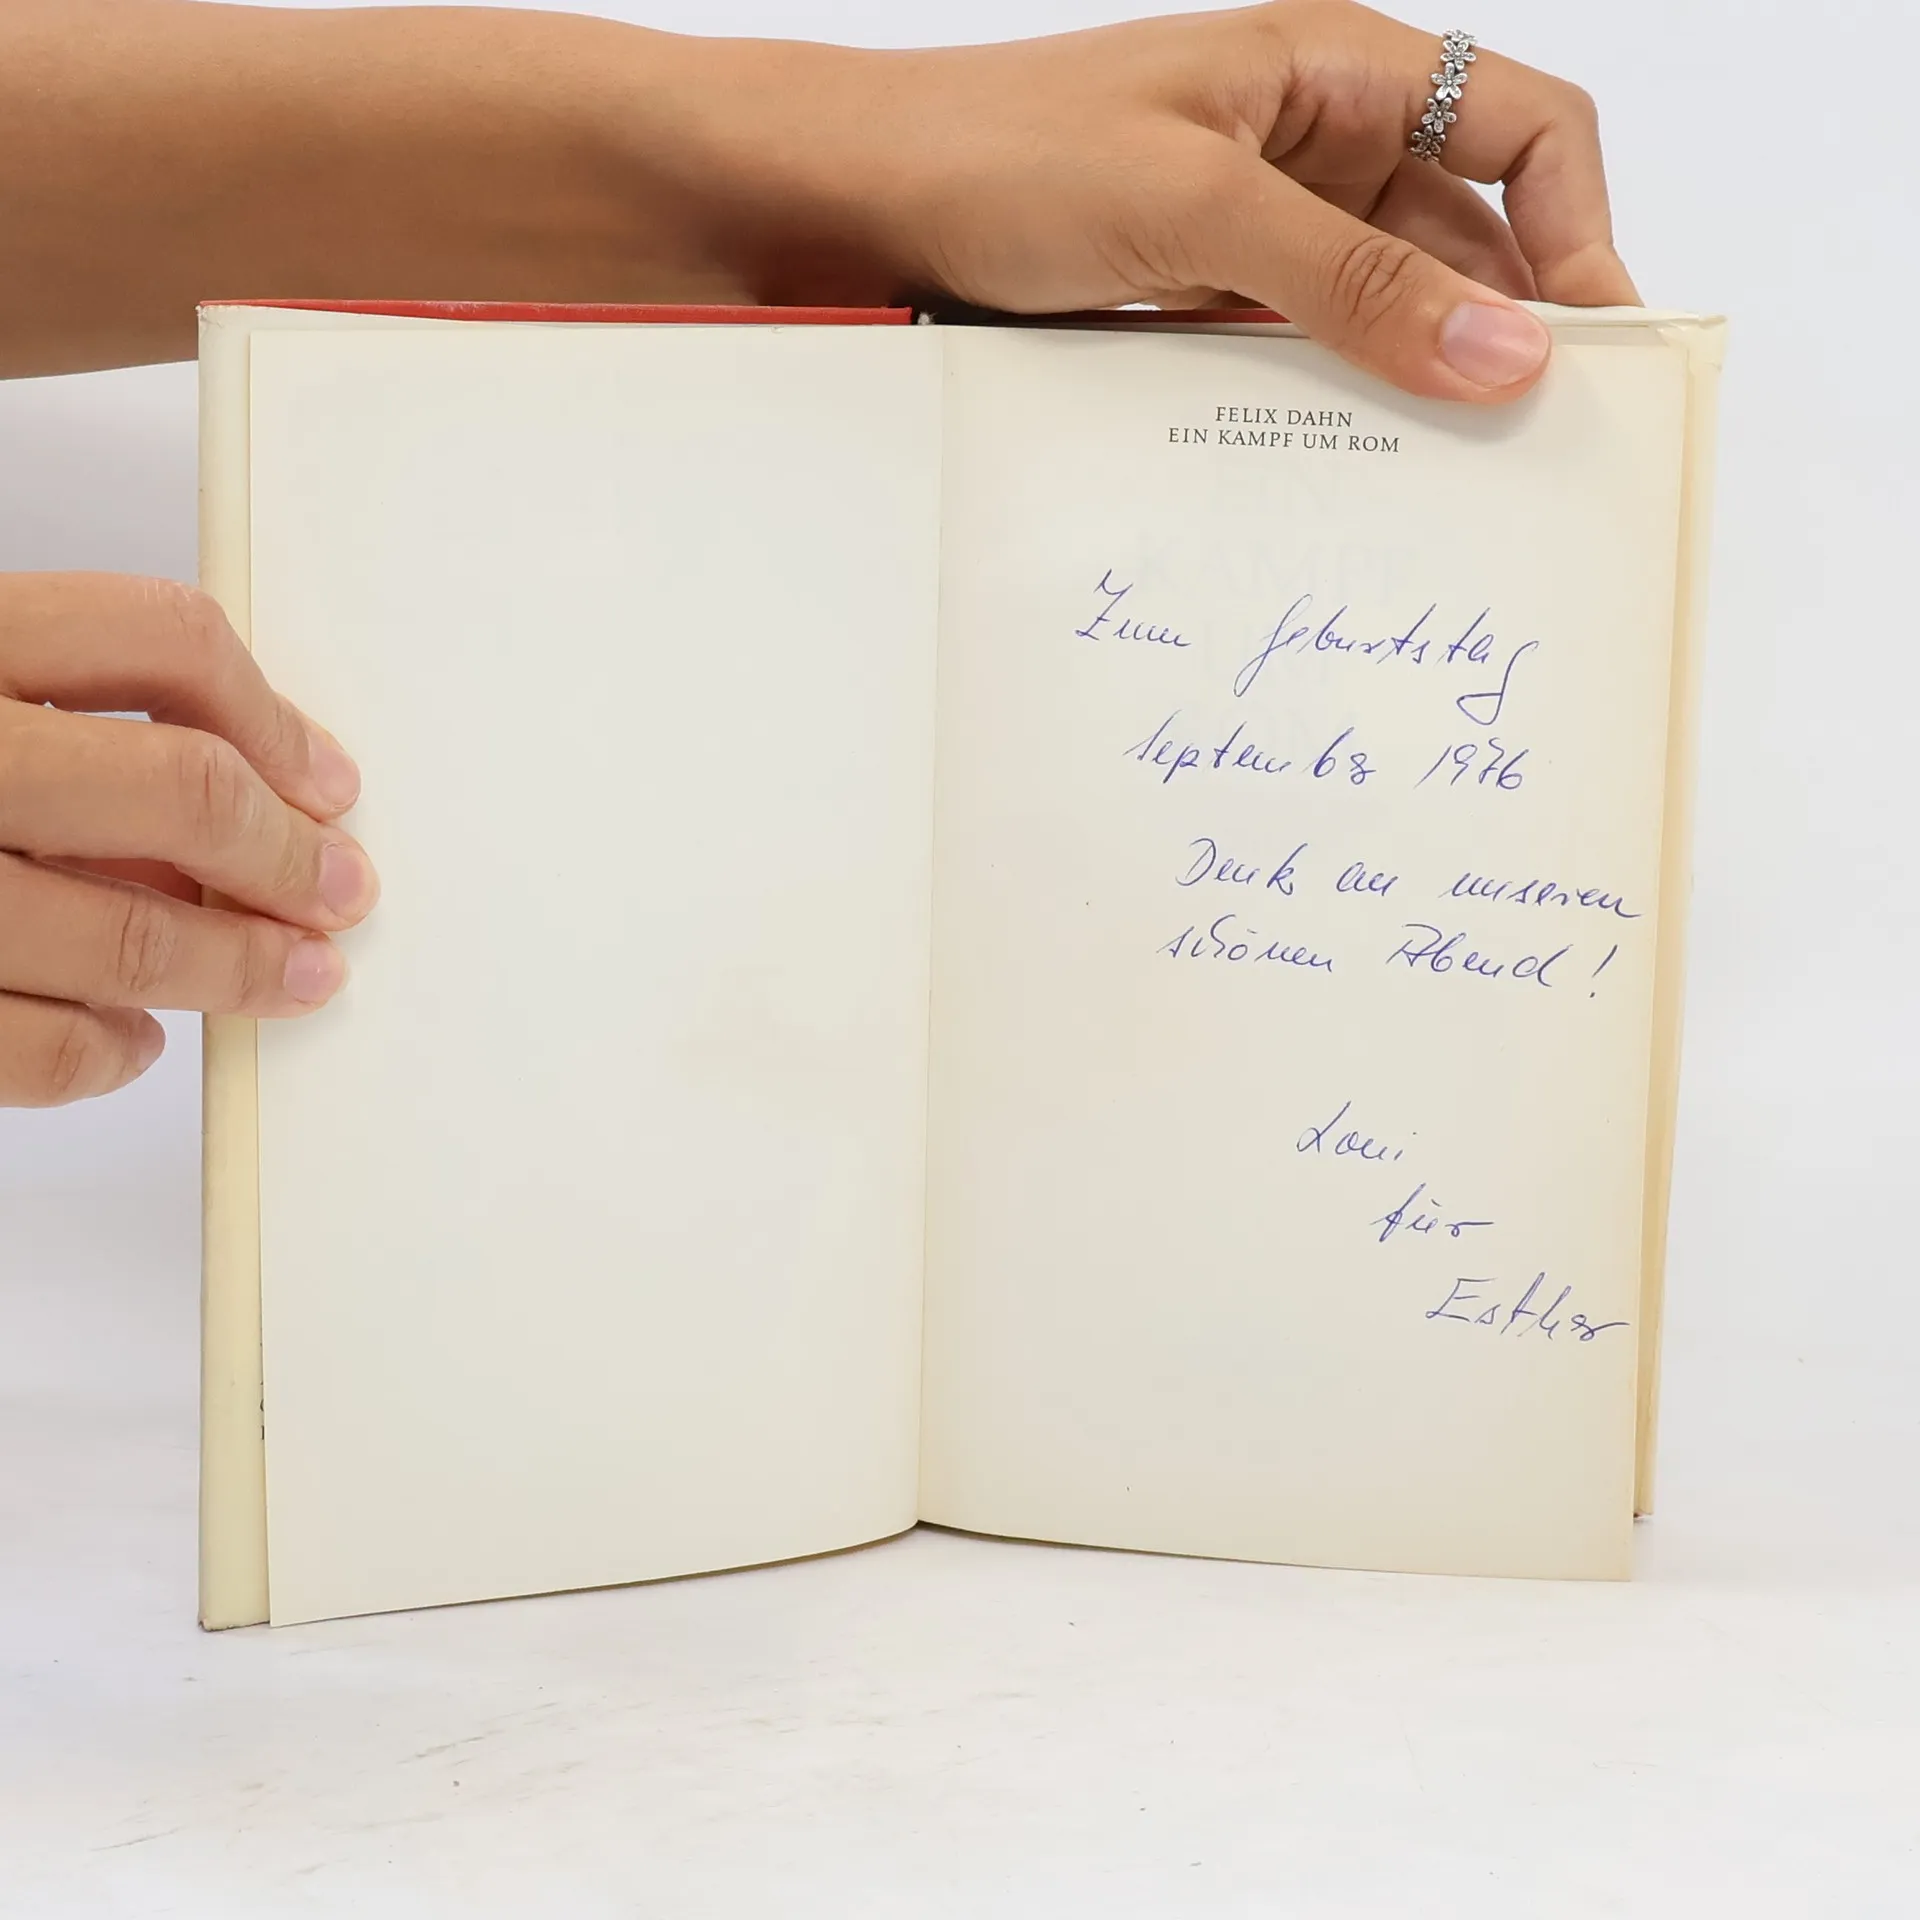 FELIX DAHN
EIN KAMPF UM ROM
Zum Geburtstag
September 1976
Denk an unseren
schönen Abend!
Loni
für
Esther